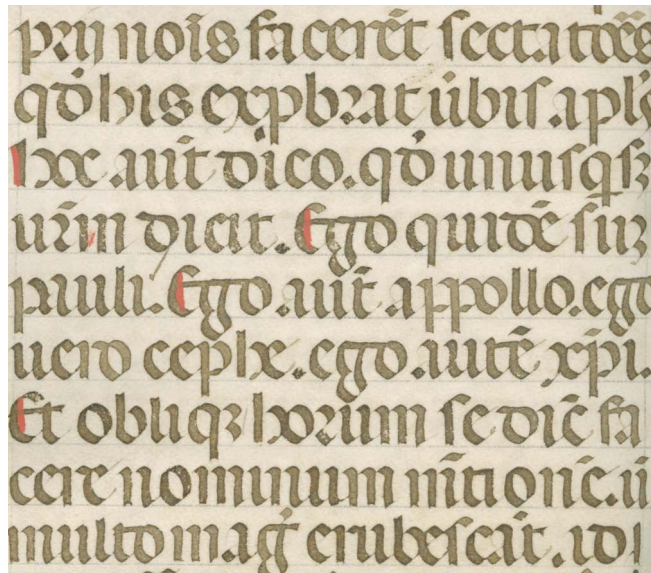 prij noīs facerēt sectatoēs
qđ his expbrat ūbis. apls
hoc aūt dico. qđ unusqsꝫ
ur̄m dicit. Ego quidē suꝫ
pauli. Ego aūt appollo. ego
uero cephe. ego autē xp̄i.
Et obliqꝫ horum se dic̄ fa
cere nominum mētionē.
multo mag̓ erubescāt.